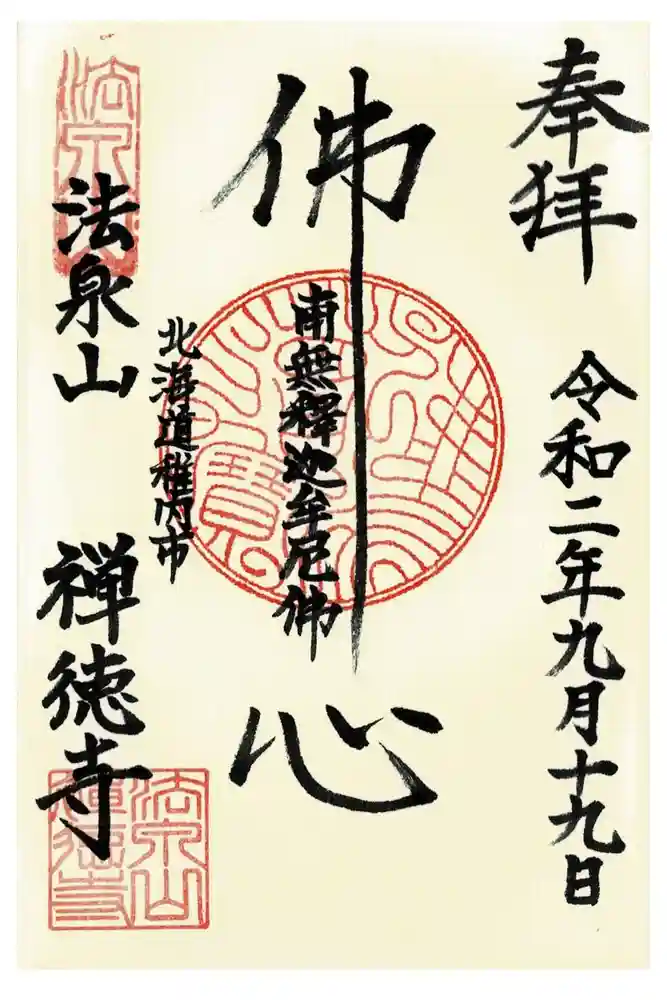 奉拝
令和二年九月十九日
佛心
南無釋迦牟尼佛
北海道稚内市
法泉山
禅徳寺
法泉山
禅徳寺